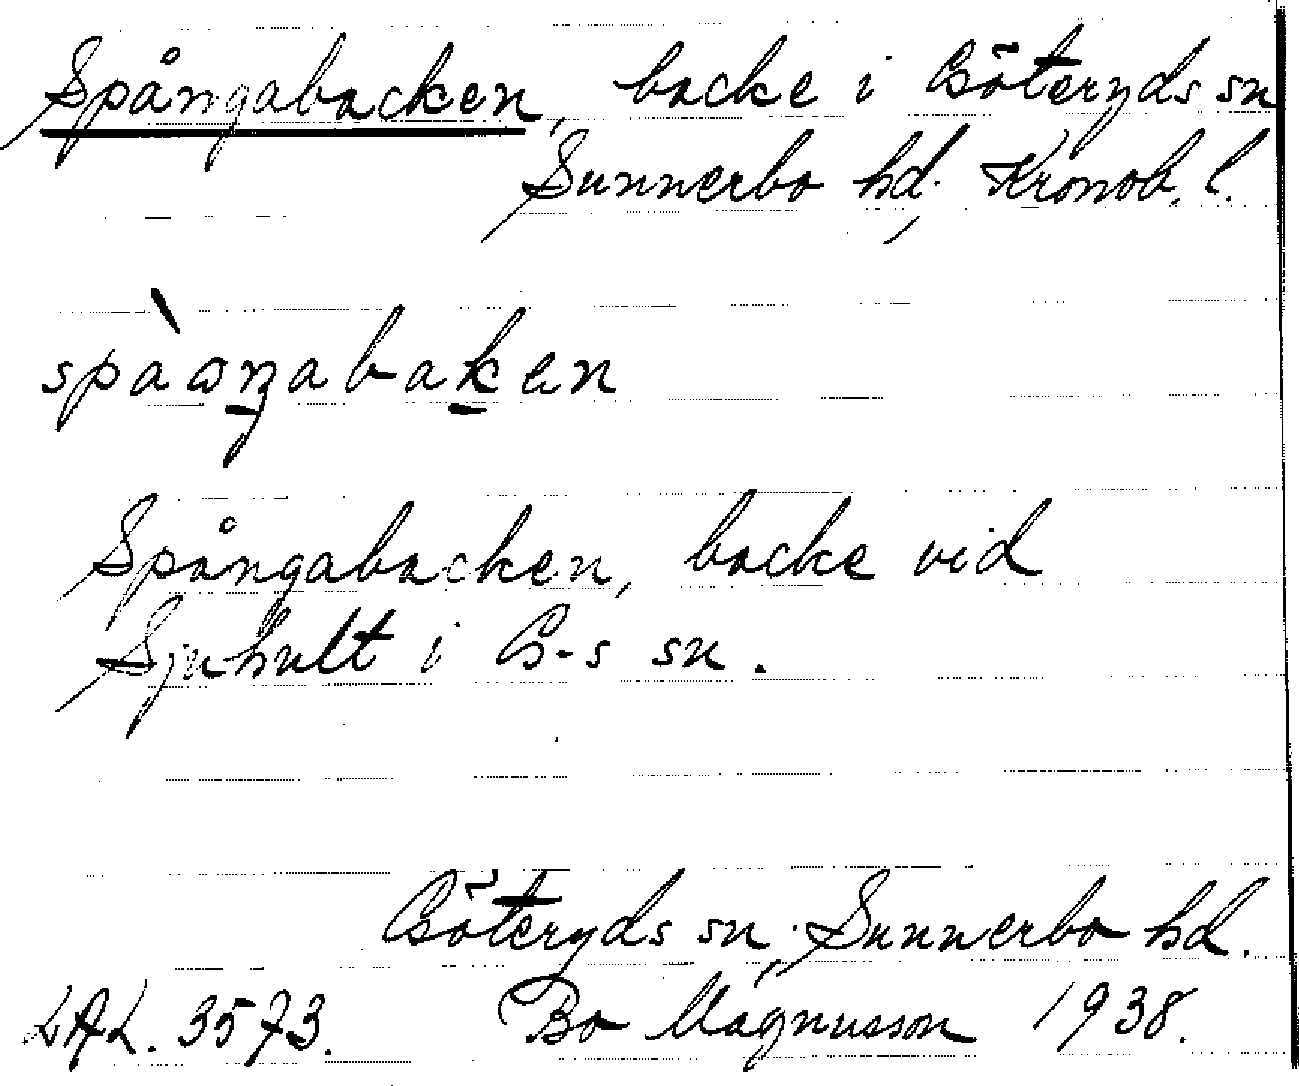 Spångabacken, backe i Göteryds sn
Sunnerbo hd, Kronob. l.
spàωŋabaken
Spångabacken, backe vid
Sjuhult i G-s sn.
Göteryds sn, Sunnerbo hd.
LAL. 3573. Bo Magnusson 1938.